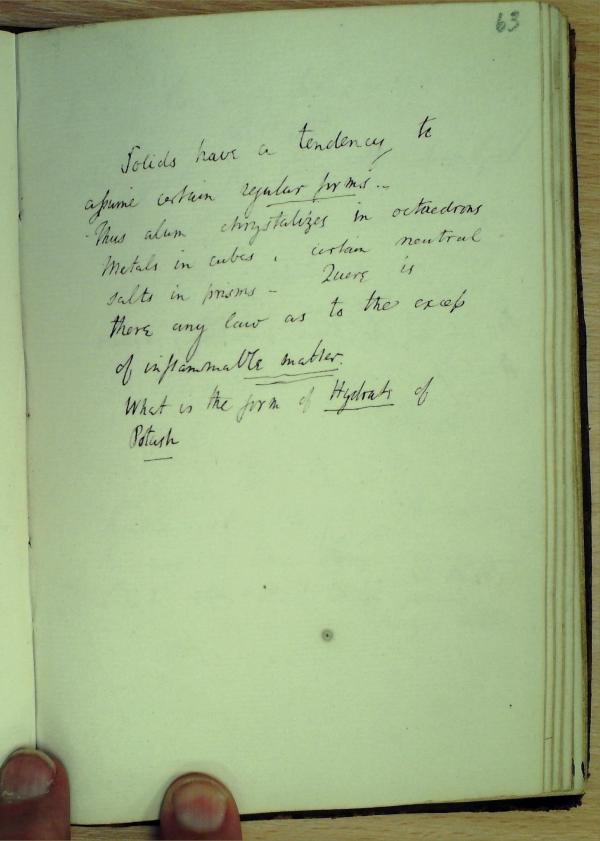 63
Solids have a tendency to
assume certain regular forms.-
Thus alum chrystalizes in octaedrons
Metals in cubes, certain neutral
salts in prisms - Quere is
there any law as to the excess
of inflammable matter.
What is the form of Hydrate of
Potash